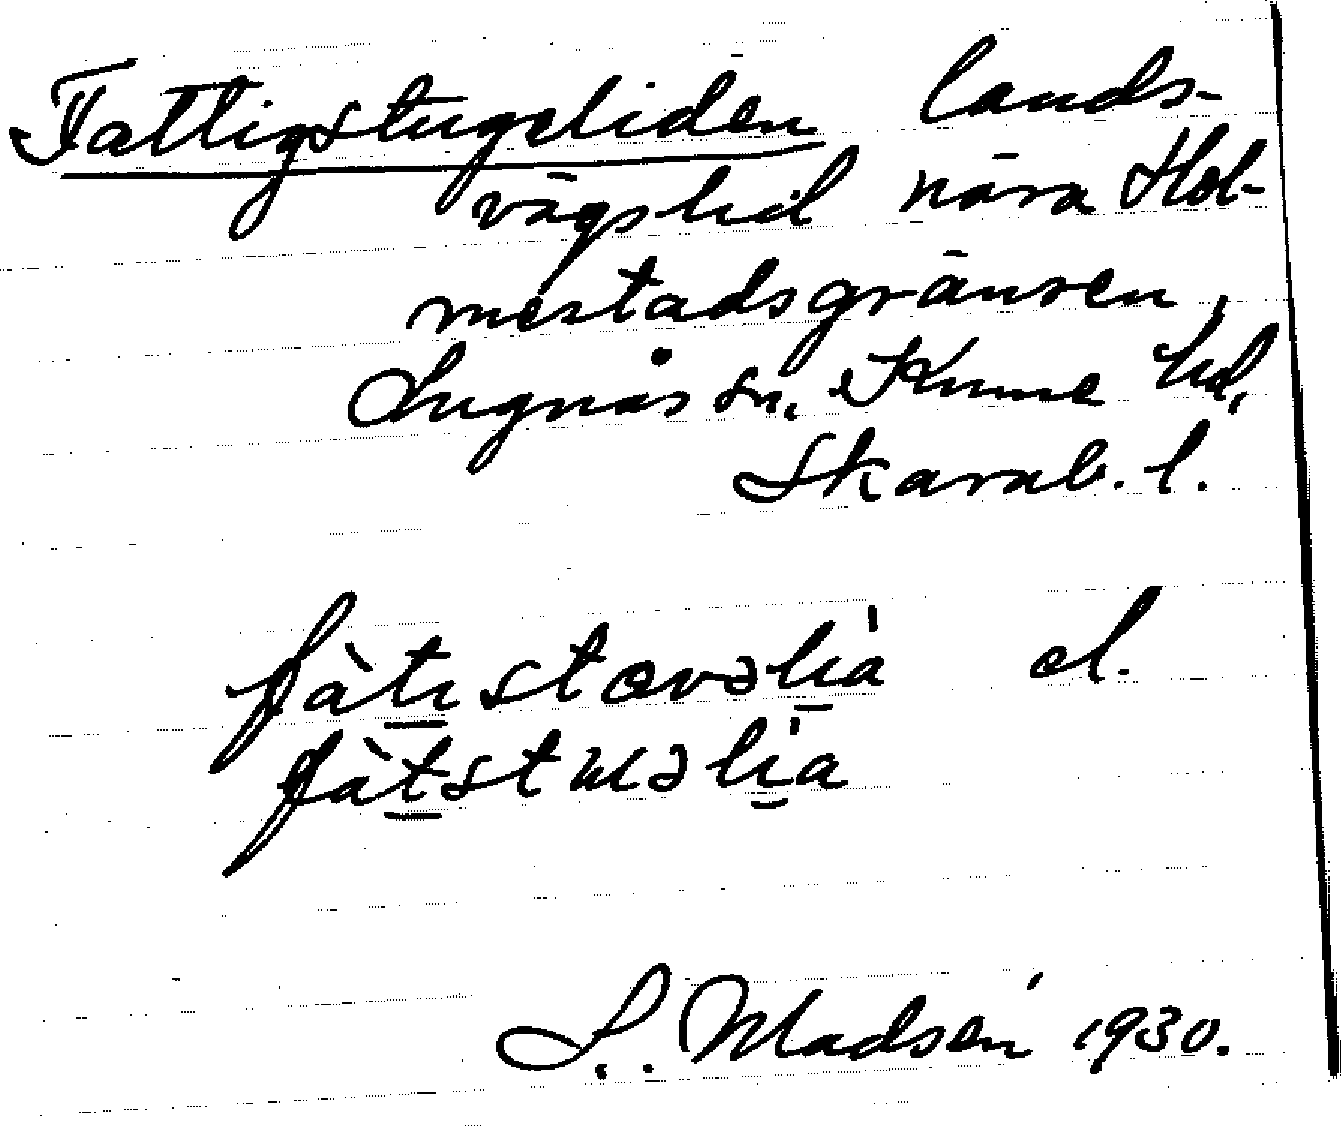 Fattigstugeliden lands-
vägslid nära Hol-
mestadsgränsen,
Lugnås sn, Kinne hd,
Skarab. l.
fàtɩstɷvəlɩ̀a el.
fàtstɯəlɩ̀a
S. Madsén 1930.